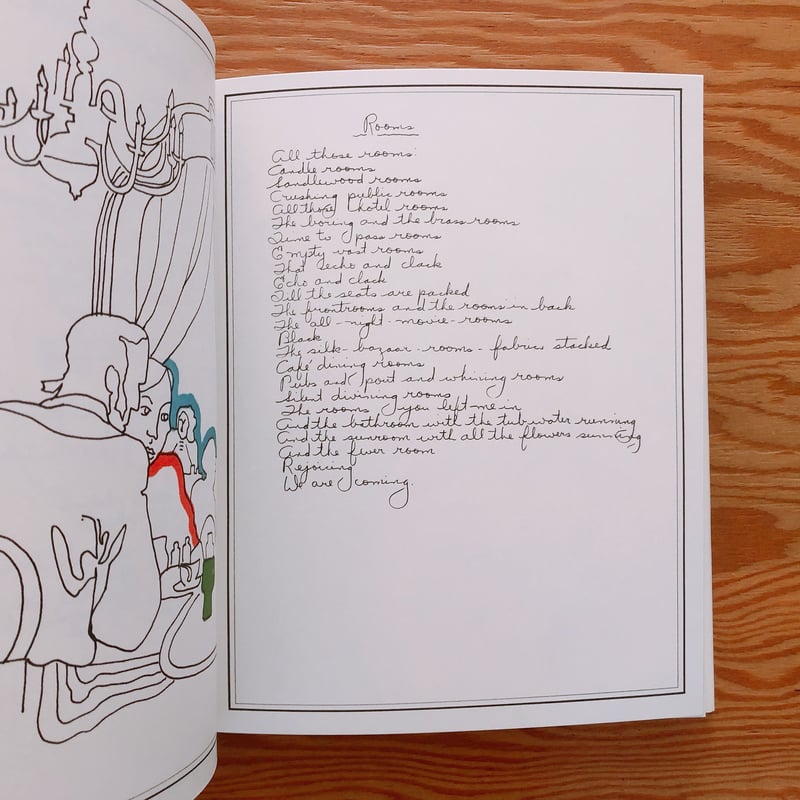 Rooms
All those rooms:
Candle rooms
Sandlewood rooms
Crushing public rooms
All those hotel rooms
The boring and the brass rooms
Time to pass rooms
Empty vast rooms
That echo and clack
Echo and clack
Till the seats are packed
The frontrooms and the rooms in back
The all-night-movie-rooms
Black
The silk-bazaar-rooms-fabrics stacked
Café dining rooms
Pubs and pout and whining rooms
Silent divining rooms
The rooms you left me in
And the bathroom with the tub water running
And the sunroom with all the flowers sunning
And the fever room
Rejoicing
We are coming.